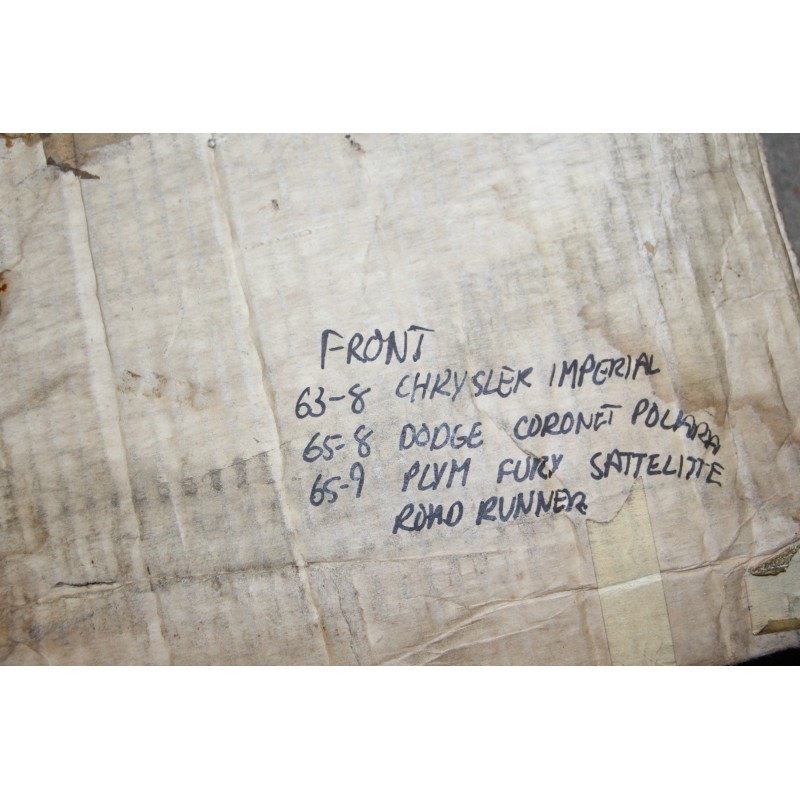 FRONT
63-8 CHRYSLER IMPERIAL
65-8 DODGE CORONET POLARA
65-9 PLYM FURY SATTELITTE
ROAD RUNNER